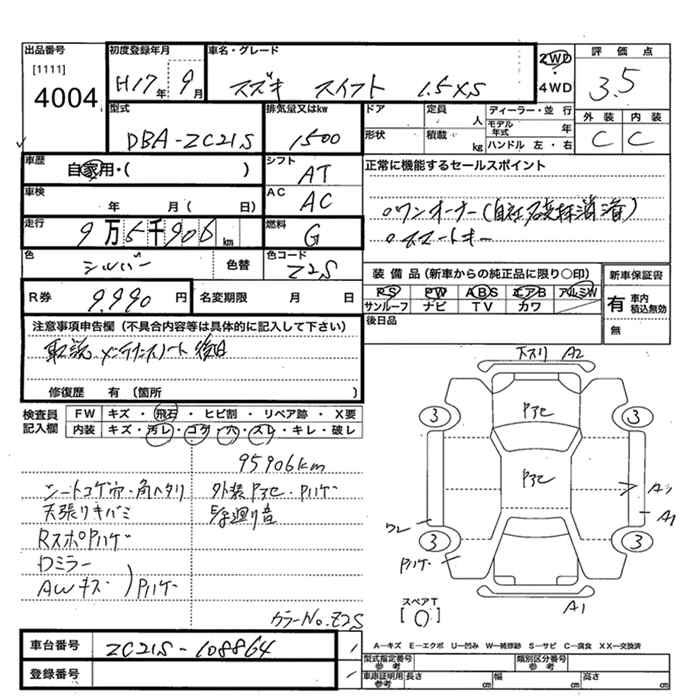 出品番号 初度登録年月 車名・グレード 評価点
[1111]
4004 H17年 9月 スズキ スイフト 1.5XS 2WD 4WD 3.5
型式 排気量又はkw ドア 定員 人 ディーラー・並行 外装 内装
DBA-ZC21S 1500 形状 積載 kg モデル年式 年 ハンドル 左・右 C C
車歴 自家用・( ) シフト AT 正常に機能するセールスポイント
車検 年 月( 日) AC AC ○ワンオーナー(自社名義抹消済)
走行 9万5千906km 燃料 G ○スマートキー
色 シルバー 色替 色コード Z2S 装備品(新車からの純正品に限り○印) 新車保証書
R券 9,990円 名変期限 月 日 PS PW ABS エアB アルミW 有 車内積込無効
サンルーフ ナビ TV カワ
注意事項申告欄(不具合内容等は具体的に記入して下さい) 後日品 無
取説 メンテナンスノート 後日
修復歴 有(箇所 )
検査員記入欄 FW キズ・飛石・ヒビ割・リペア跡・X要
内装 キズ・汚レ・コゲ・穴・スレ・キレ・破レ
95906km
シートコゲ穴・角ヘタリ 外装アセ・ハゲ
天張リキバミ
Rスポハゲ
Dミラー
AWキズ ハゲ
カラーNo.Z2S
下スリ A2
アセ
3 3
アセ
A1
A1
ワレ
3 3
ハゲ
A1
スペアT
[ ○ ]
車台番号 ZC21S-108864
登録番号
A—キズ E—エクボ U—凹み W—補修跡 S—サビ C—腐食 XX—交換済
型式指定番号 参考 類別区分番号 参考
車庫証明用 参考 長さ cm 幅 cm 高さ cm